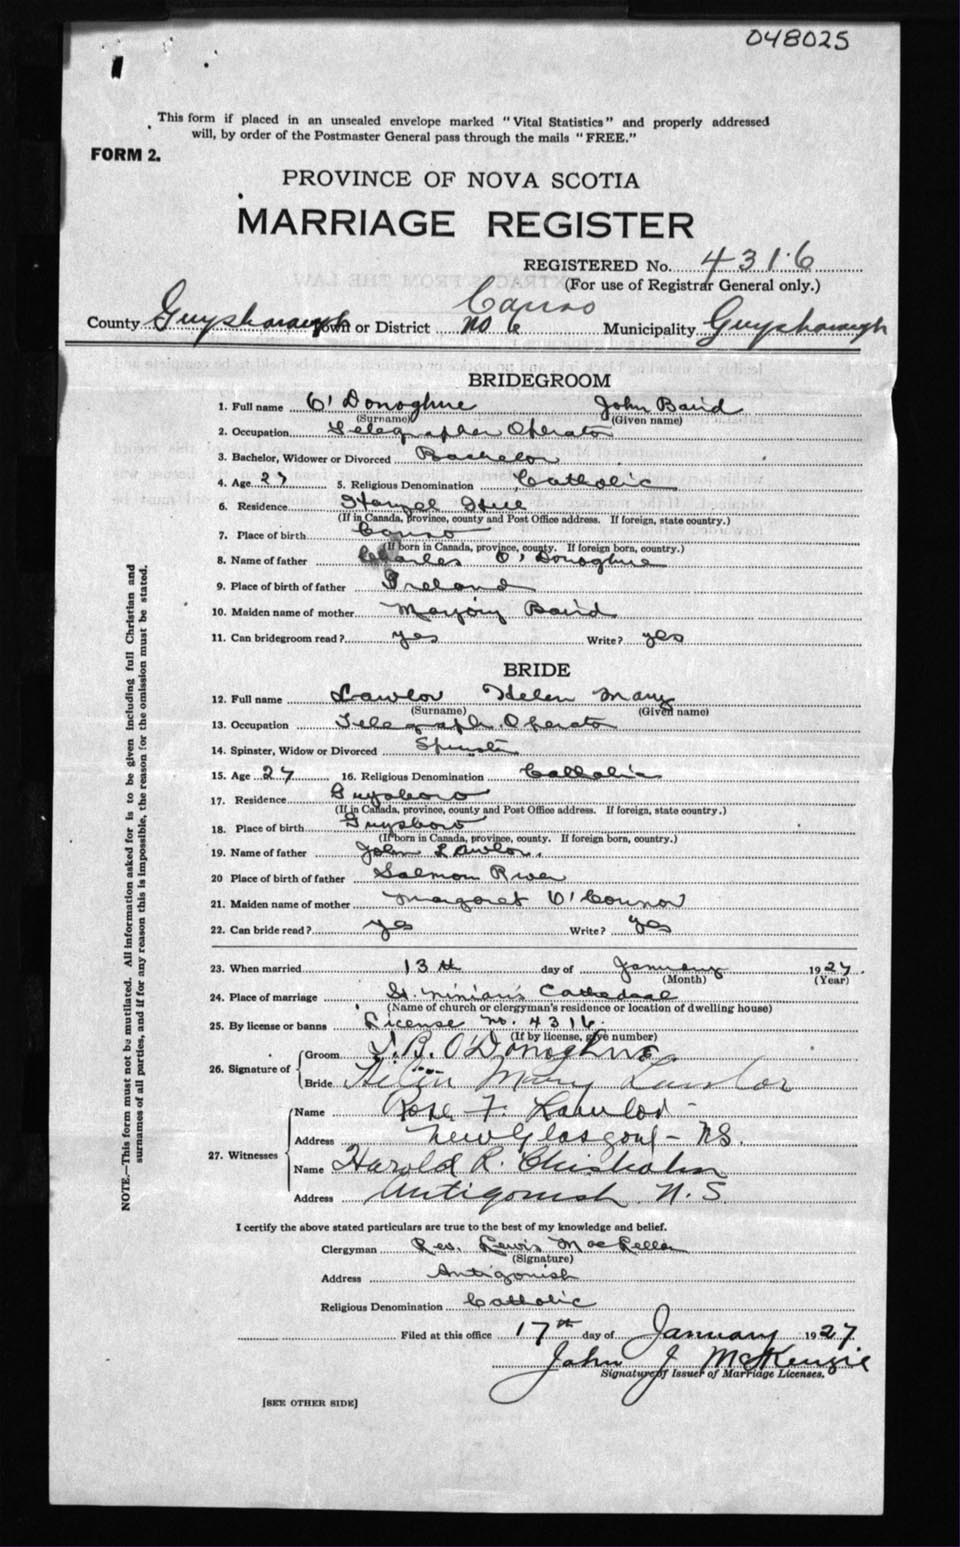 048025
This form if placed in an unsealed envelope marked "Vital Statistics" and properly addressed
will, by order of the Postmaster General pass through the mails "FREE."
FORM 2.
PROVINCE OF NOVA SCOTIA
MARRIAGE REGISTER
REGISTERED No. 4316
(For use of Registrar General only.)
Canso
County Guysborough Town or District No 6 Municipality Guysborough
BRIDEGROOM
1. Full name O'Donoghue John Baird
(Surname) (Given name)
2. Occupation Telegrapher Operator
3. Bachelor, Widower or Divorced Bachelor
4. Age 27 5. Religious Denomination Catholic
6. Residence Hazel Hill
(If in Canada, province, county and Post Office address. If foreign, state country.)
7. Place of birth Canso
(If born in Canada, province, county. If foreign born, country.)
8. Name of father Charles O'Donoghue
9. Place of birth of father Ireland
10. Maiden name of mother Marjory Baird
11. Can bridegroom read? yes Write? yes
BRIDE
12. Full name Lawlor Helen Mary
(Surname) (Given name)
13. Occupation Telegraph Operator
14. Spinster, Widow or Divorced Spinster
15. Age 27 16. Religious Denomination Catholic
17. Residence Guysboro
(If in Canada, province, county and Post Office address. If foreign, state country.)
18. Place of birth Guysboro
(If born in Canada, province, county. If foreign born, country.)
19. Name of father John Lawlor.
20 Place of birth of father Salmon River
21. Maiden name of mother Margaret O'Connor
22. Can bride read? yes Write? yes
23. When married 13th day of January 1927.
(Month) (Year)
24. Place of marriage St Ninian's Cathedral
(Name of church or clergyman's residence or location of dwelling house)
25. By license or banns License No. 4316.
(If by license, give number)
26. Signature of
Groom J.B. O'Donoghue
Bride Helen Mary Lawlor
27. Witnesses
Name Rose F. Lawlor
Address New Glasgow - N.S.
Name Harold R. Chisholm
Address Antigonish N.S
I certify the above stated particulars are true to the best of my knowledge and belief.
Clergyman Rev. Lewis MacLellan
(Signature)
Address Antigonish
Religious Denomination Catholic
Filed at this office 17th day of January 1927
John J. McKenzie
Signature of Issuer of Marriage Licenses.
[SEE OTHER SIDE]
NOTE.—This form must not be mutilated. All information asked for is to be given including full Christian and
surnames of all parties, and if for any reason this is impossible, the reason for the omission must be stated.